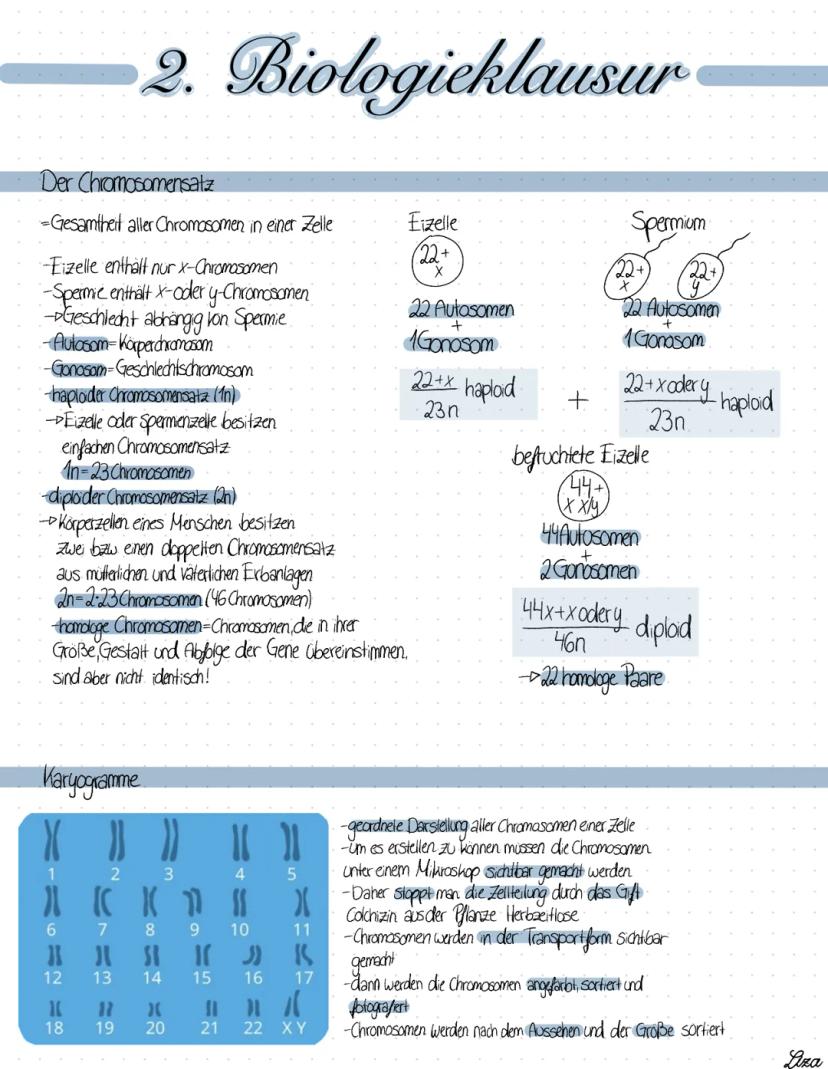 2. Biologieklausur
Der Chromosomensatz
=Gesamtheit aller Chromosomen in einer Zelle
-Eizelle enthält nur x-Chromosomen
-Spermie enthält x-oder y-Chromosomen
→Geschlecht abhängig von Spermie
-Autosom=Körperchromosom
-Gonosom=Geschlechtschromosom
-haploider Chromosomensatz (1n)
→Eizelle oder Spermienzelle besitzen
einfachen Chromosomensatz
1n=23 Chromosomen
-diploider Chromosomensatz (2n)
→Körperzellen eines Menschen besitzen
zwei bzw einen doppelten Chromosomensatz
aus mütterlichen und väterlichen Erbanlagen
2n=2·23 Chromosomen (46 Chromosomen)
-homologe Chromosomen=Chromosomen, die in ihrer
Größe, Gestalt und Abfolge der Gene übereinstimmen,
sind aber nicht identisch!
Eizelle
22+
x
22 Autosomen
+
1 Gonosom
22+x
23n
haploid
+
Spermium
22+
x
22+
y
22 Autosomen
+
1 Gonosom
22+x oder y
23n
haploid
befruchtete Eizelle
44+
x x/y
44 Autosomen
+
2 Gonosomen
44x+x oder y
46n
diploid
→22 homologe Paare
Karyogramme
1 2 3 4 5
6 7 8 9 10 11
12 13 14 15 16 17
18 19 20 21 22 X Y
-geordnete Darstellung aller Chromosomen einer Zelle
-um es erstellen zu können müssen die Chromosomen
unter einem Mikroskop sichtbar gemacht werden
-Daher stoppt man die Zellteilung durch das Gift
Colchizin aus der Pflanze Herbzeitlose
-Chromosomen werden in der Transportform sichtbar
gemacht
-dann werden die Chromosomen angefärbt, sortiert und
fotografiert
-Chromosomen werden nach dem Aussehen und der Größe sortiert
Liza